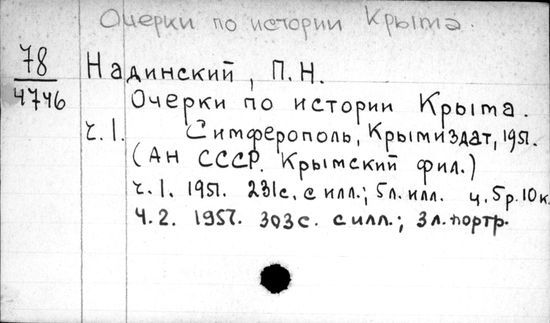 Очерки по истории Крыма.
78
4746
Надинский, П.Н.
Очерки по истории Крыма.
ч.1. Симферополь, Крымиздат, 1951.
(АН СССР. Крымский фил.)
ч.1. 1951. 231с. с илл.; 5л. илл. ц. 5р. 10к.
Ч.2. 1957. 303с. с илл.; 3л. портр.